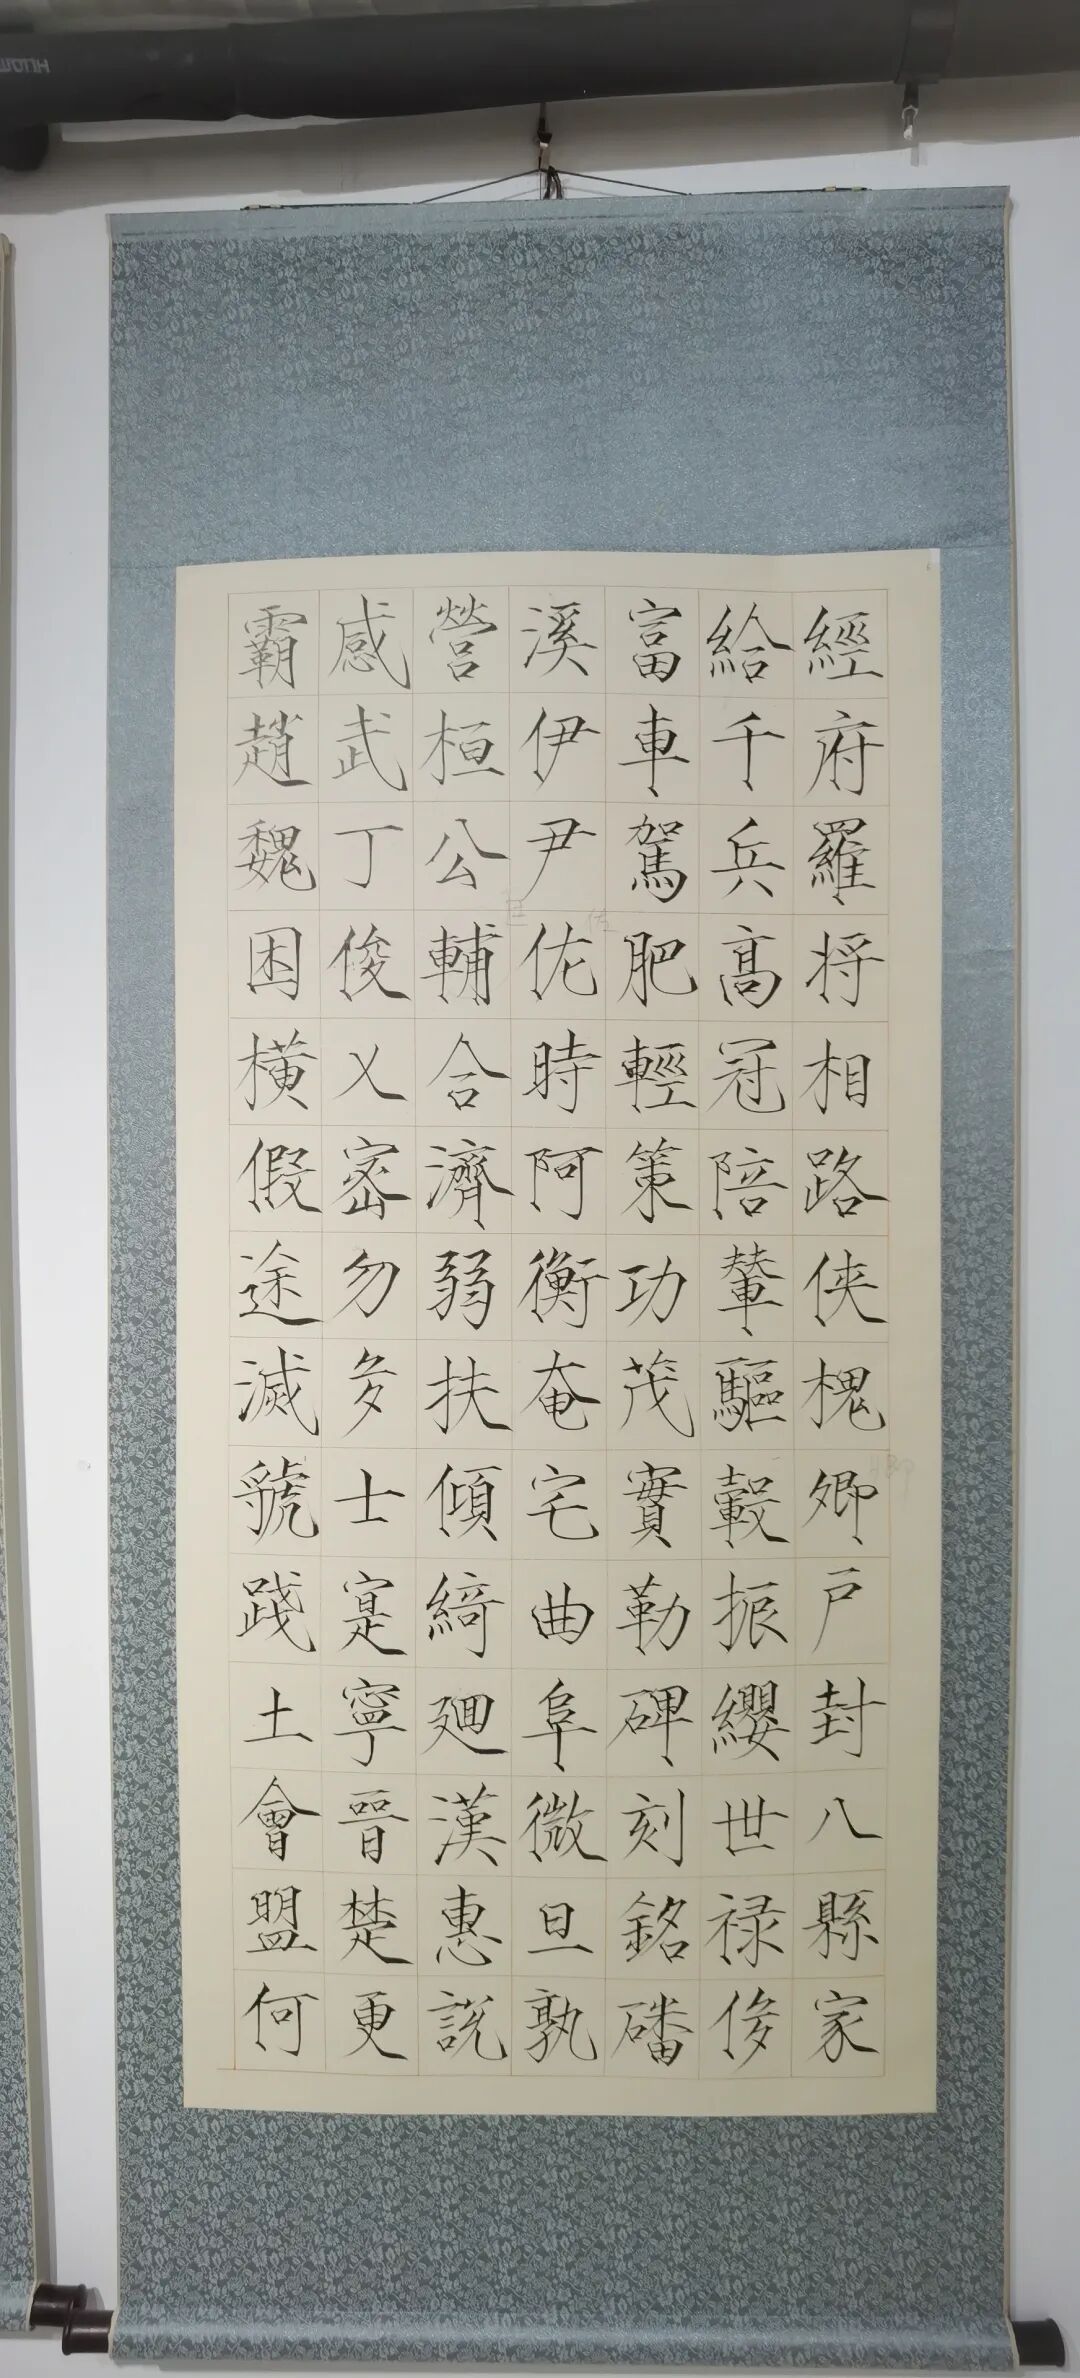 經府羅将相路侠槐卿户封八縣家
給千兵高冠陪輦驅轂振纓世禄侈
富車駕肥輕策功茂實勒碑刻銘磻
溪伊尹佐時阿衡奄宅曲阜微旦孰
營桓公輔合濟弱扶傾綺廻漢惠説
感武丁俊乂密勿多士寔寧晉楚更
霸趙魏困横假途滅虢踐土會盟何